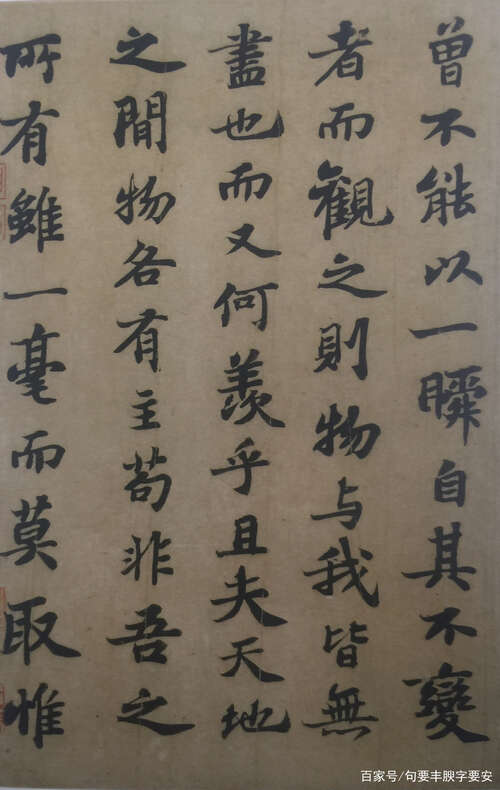 曾不能以一瞬自其不變
者而觀之則物与我皆無
盡也而又何羨乎且夫天地
之間物各有主苟非吾之
所有雖一毫而莫取惟
百家号/句要丰腴字要安